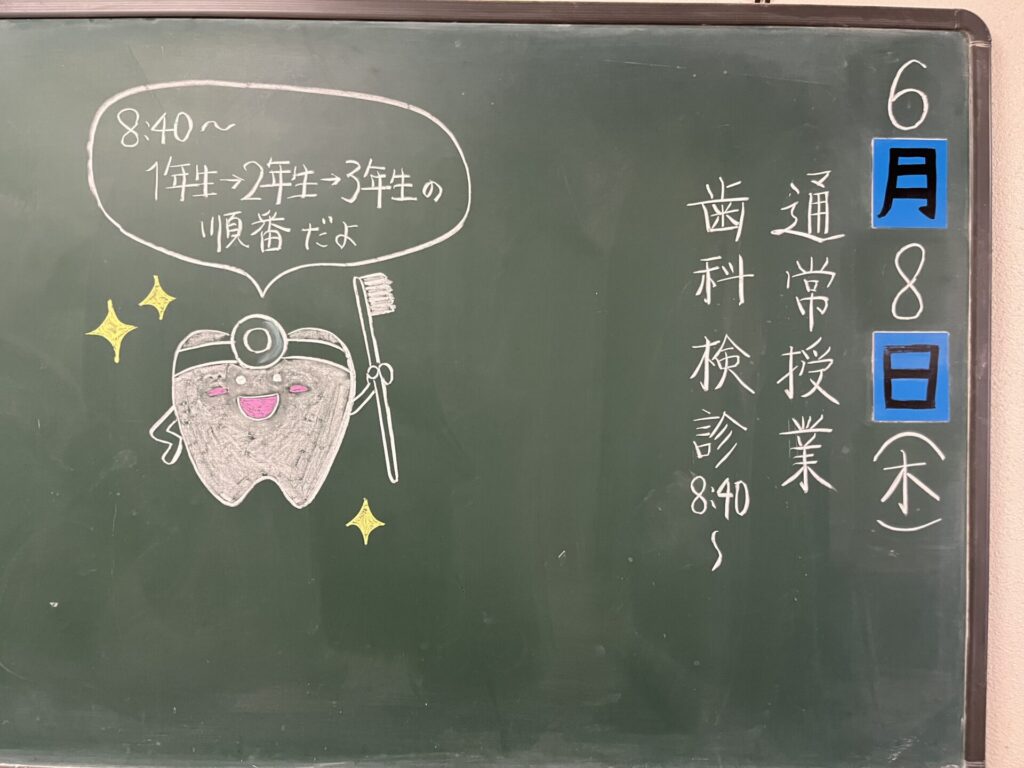 6月8日(木)
通常授業
歯科検診8:40~
8:40~
1年生→2年生→3年生の
順番だよ